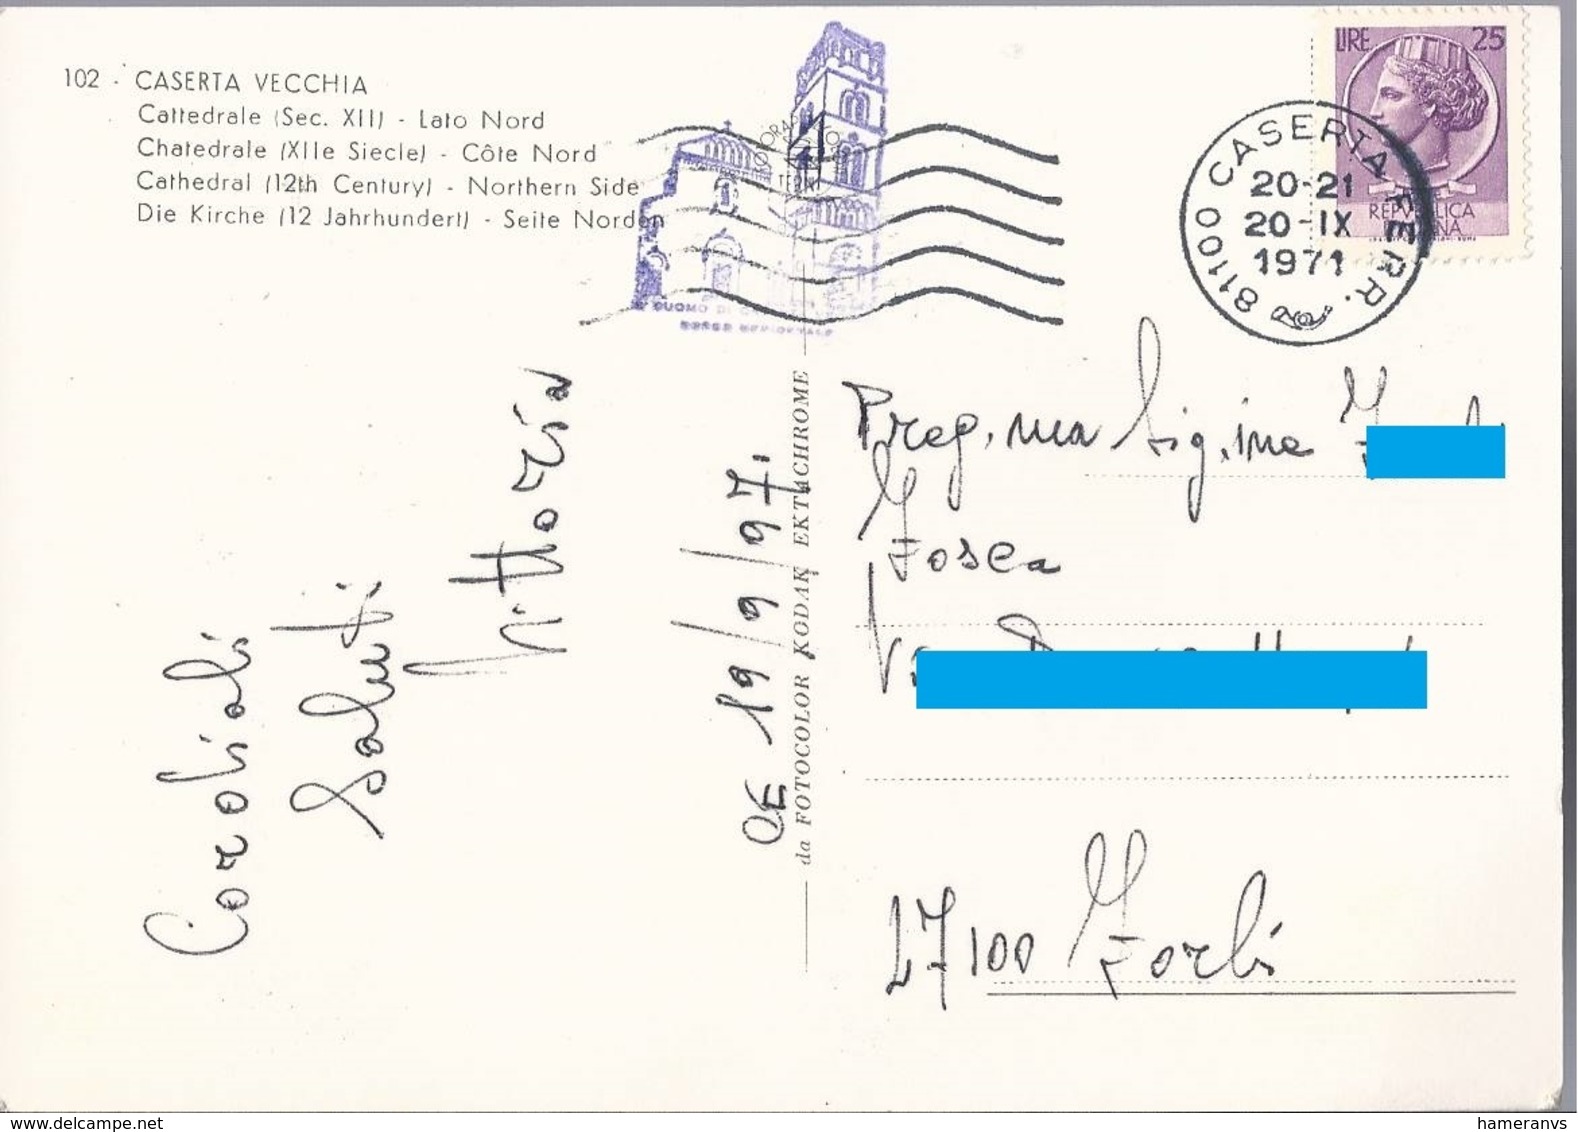 102 - CASERTA VECCHIA
Cattedrale (Sec. XII) - Lato Nord
Chatedrale (XIIe Siecle) - Côte Nord
Cathedral (12th Century) - Northern Side
Die Kirche (12 Jahrhundert) - Seite Norden
DUOMO DI
TERNI
LIRE 25
REPVBBLICA
81100 CASERTA FERR.
20-21
20-IX
1971
Cordiali
Saluti
Vittoria
CE 19/9/971
da FOTOCOLOR KODAK EKTACHROME
Preg.ma Sig.ina
Fosca
47100 Forlì
www.delcampe.net
hameranvs